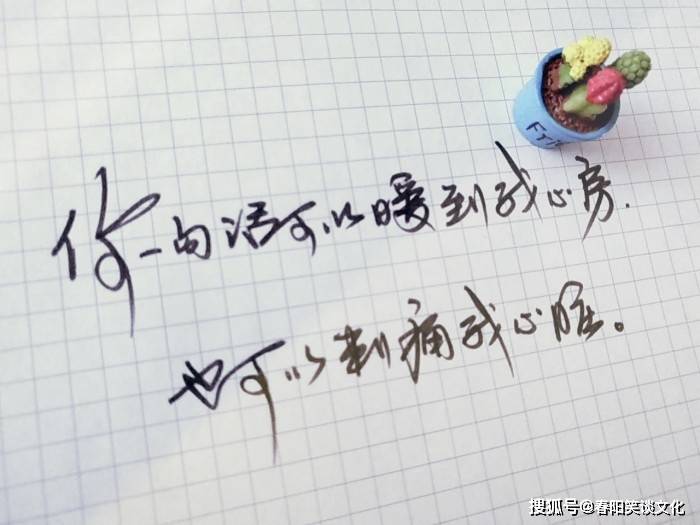 你一句话可以暖到我心房.
也可以刺痛我心脏。
搜狐号@春阳笑谈文化